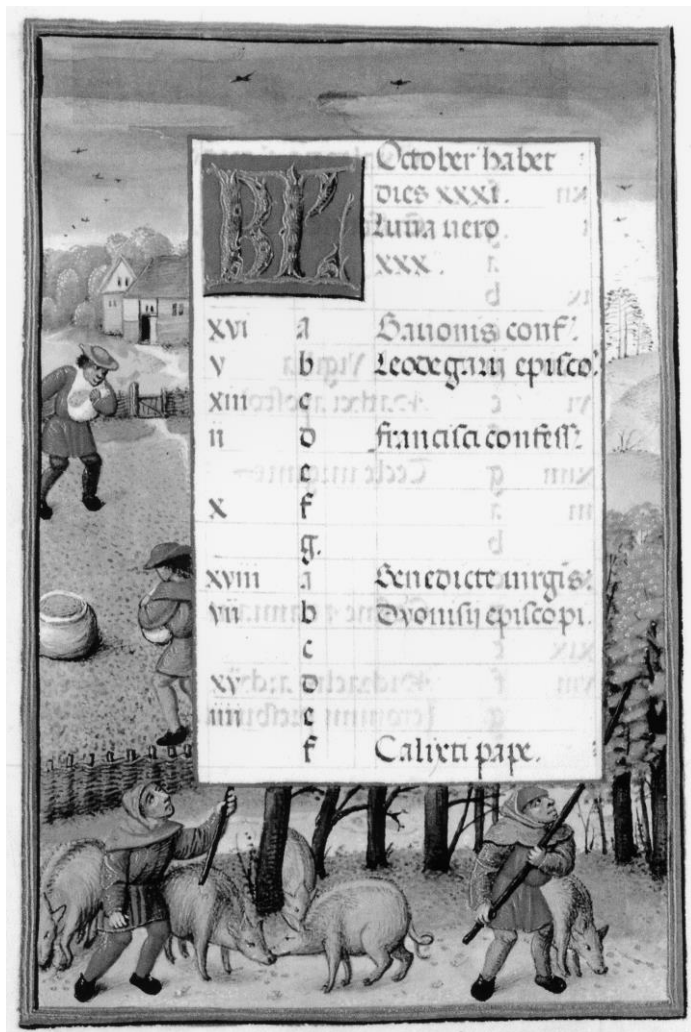 KL October habet
dies xxxi.
Luna vero
xxx.
xvi a Bavonis conf'.
v b Leodegarii episco'.
xiii c
ii d Francisci confess'.
e
x f
g.
xviii a Benedicte virgis'
vii b Dyonisij episcopi.
c
xv d
iiii e
f Calixti pape.